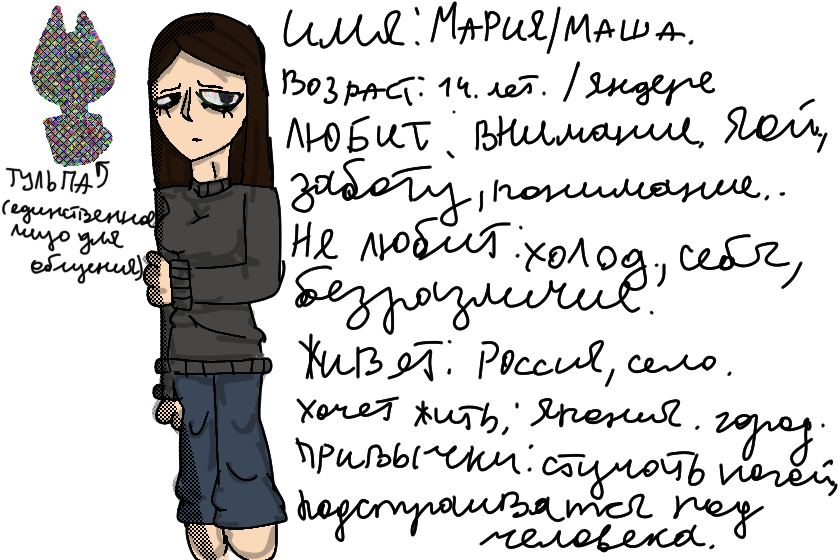 имя: Мария/Маша.
Возраст: 14. лет. / яндере
любит: внимание, яой,
заботу, понимание..
Не любит: холод, себя,
безразличие.
Живет: Россия, село.
хочет жить,: япония. город.
привычки: стучать ногой,
подстраиваться под
человека.
тульпа
(единственное
лицо для
общения)